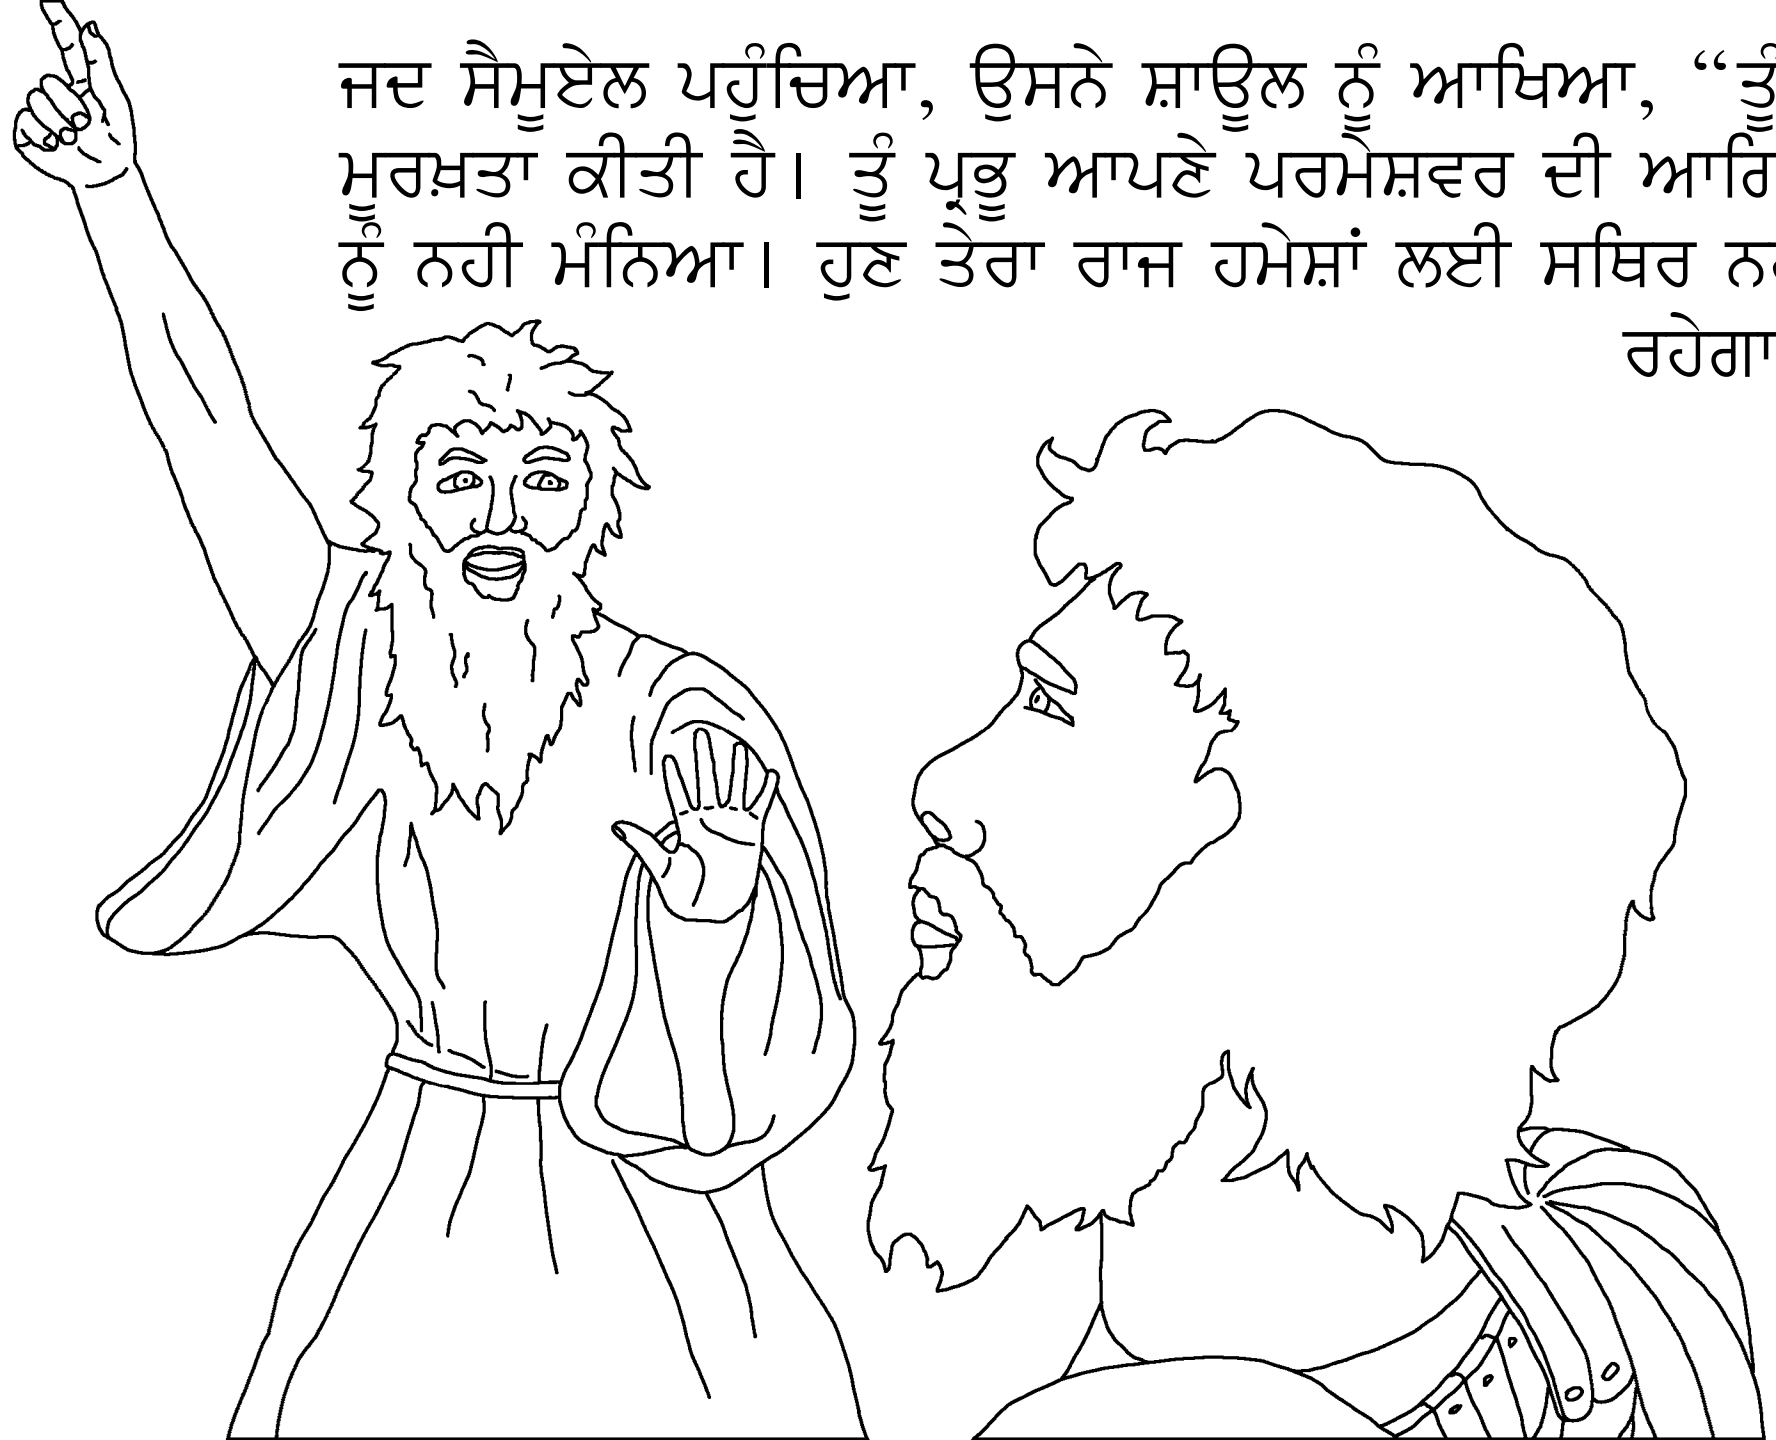 ਜਦ ਸੈਮੂਏਲ ਪਹੁੰਚਿਆ, ਉਸਨੇ ਸ਼ਾਊਲ ਨੂੰ ਆਖਿਆ, “ਤੂੰ
ਮੂਰਖ਼ਤਾ ਕੀਤੀ ਹੈ। ਤੂੰ ਪ੍ਰਭੂ ਆਪਣੇ ਪਰਮੇਸ਼ਵਰ ਦੀ
ਨੂੰ ਨਹੀ ਮੰਨਿਆ। ਹੁਣ ਤੇਰਾ ਰਾਜ ਹਮੇਸ਼ਾਂ ਲਈ ਸਥਿਰ
ਰਹੇਗਾ